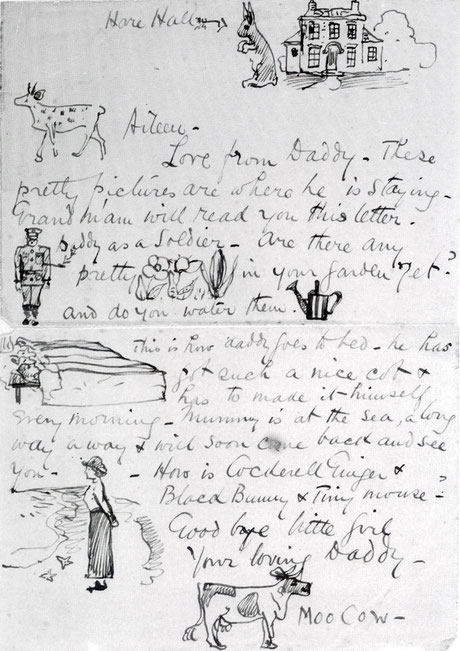 Hare Hall
Aileen -
Love from Daddy - These
pretty pictures are where he is staying -
Grand m'am will read you this letter.
Daddy as a Soldier - Are there any
pretty in your garden yet?
and do you water them.
This is how daddy goes to bed - he has
got such a nice cot &
has to made it himself
Every morning - Mummy is at the sea, a long
way away & will soon come back and see
you - - How is Cockerell Ginger &
Black Bunny & Tiny mouse - ?
Good bye little girl
Your loving Daddy -
Moo Cow -